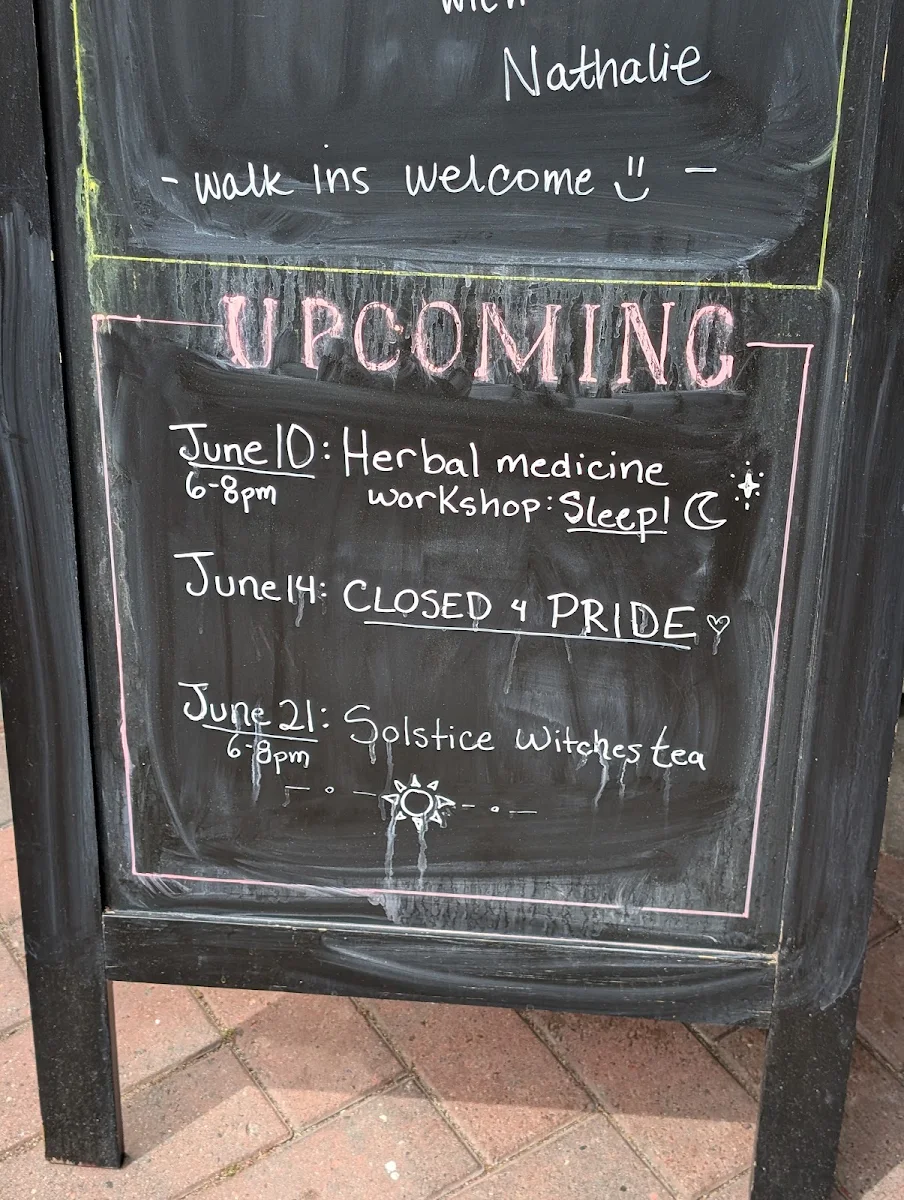 with
Nathalie
- walk ins welcome -
UPCOMING
June 10: Herbal medicine
6-8pm workshop: Sleep!
June 14: CLOSED 4 PRIDE
June 21: Solstice witches tea
6-8pm